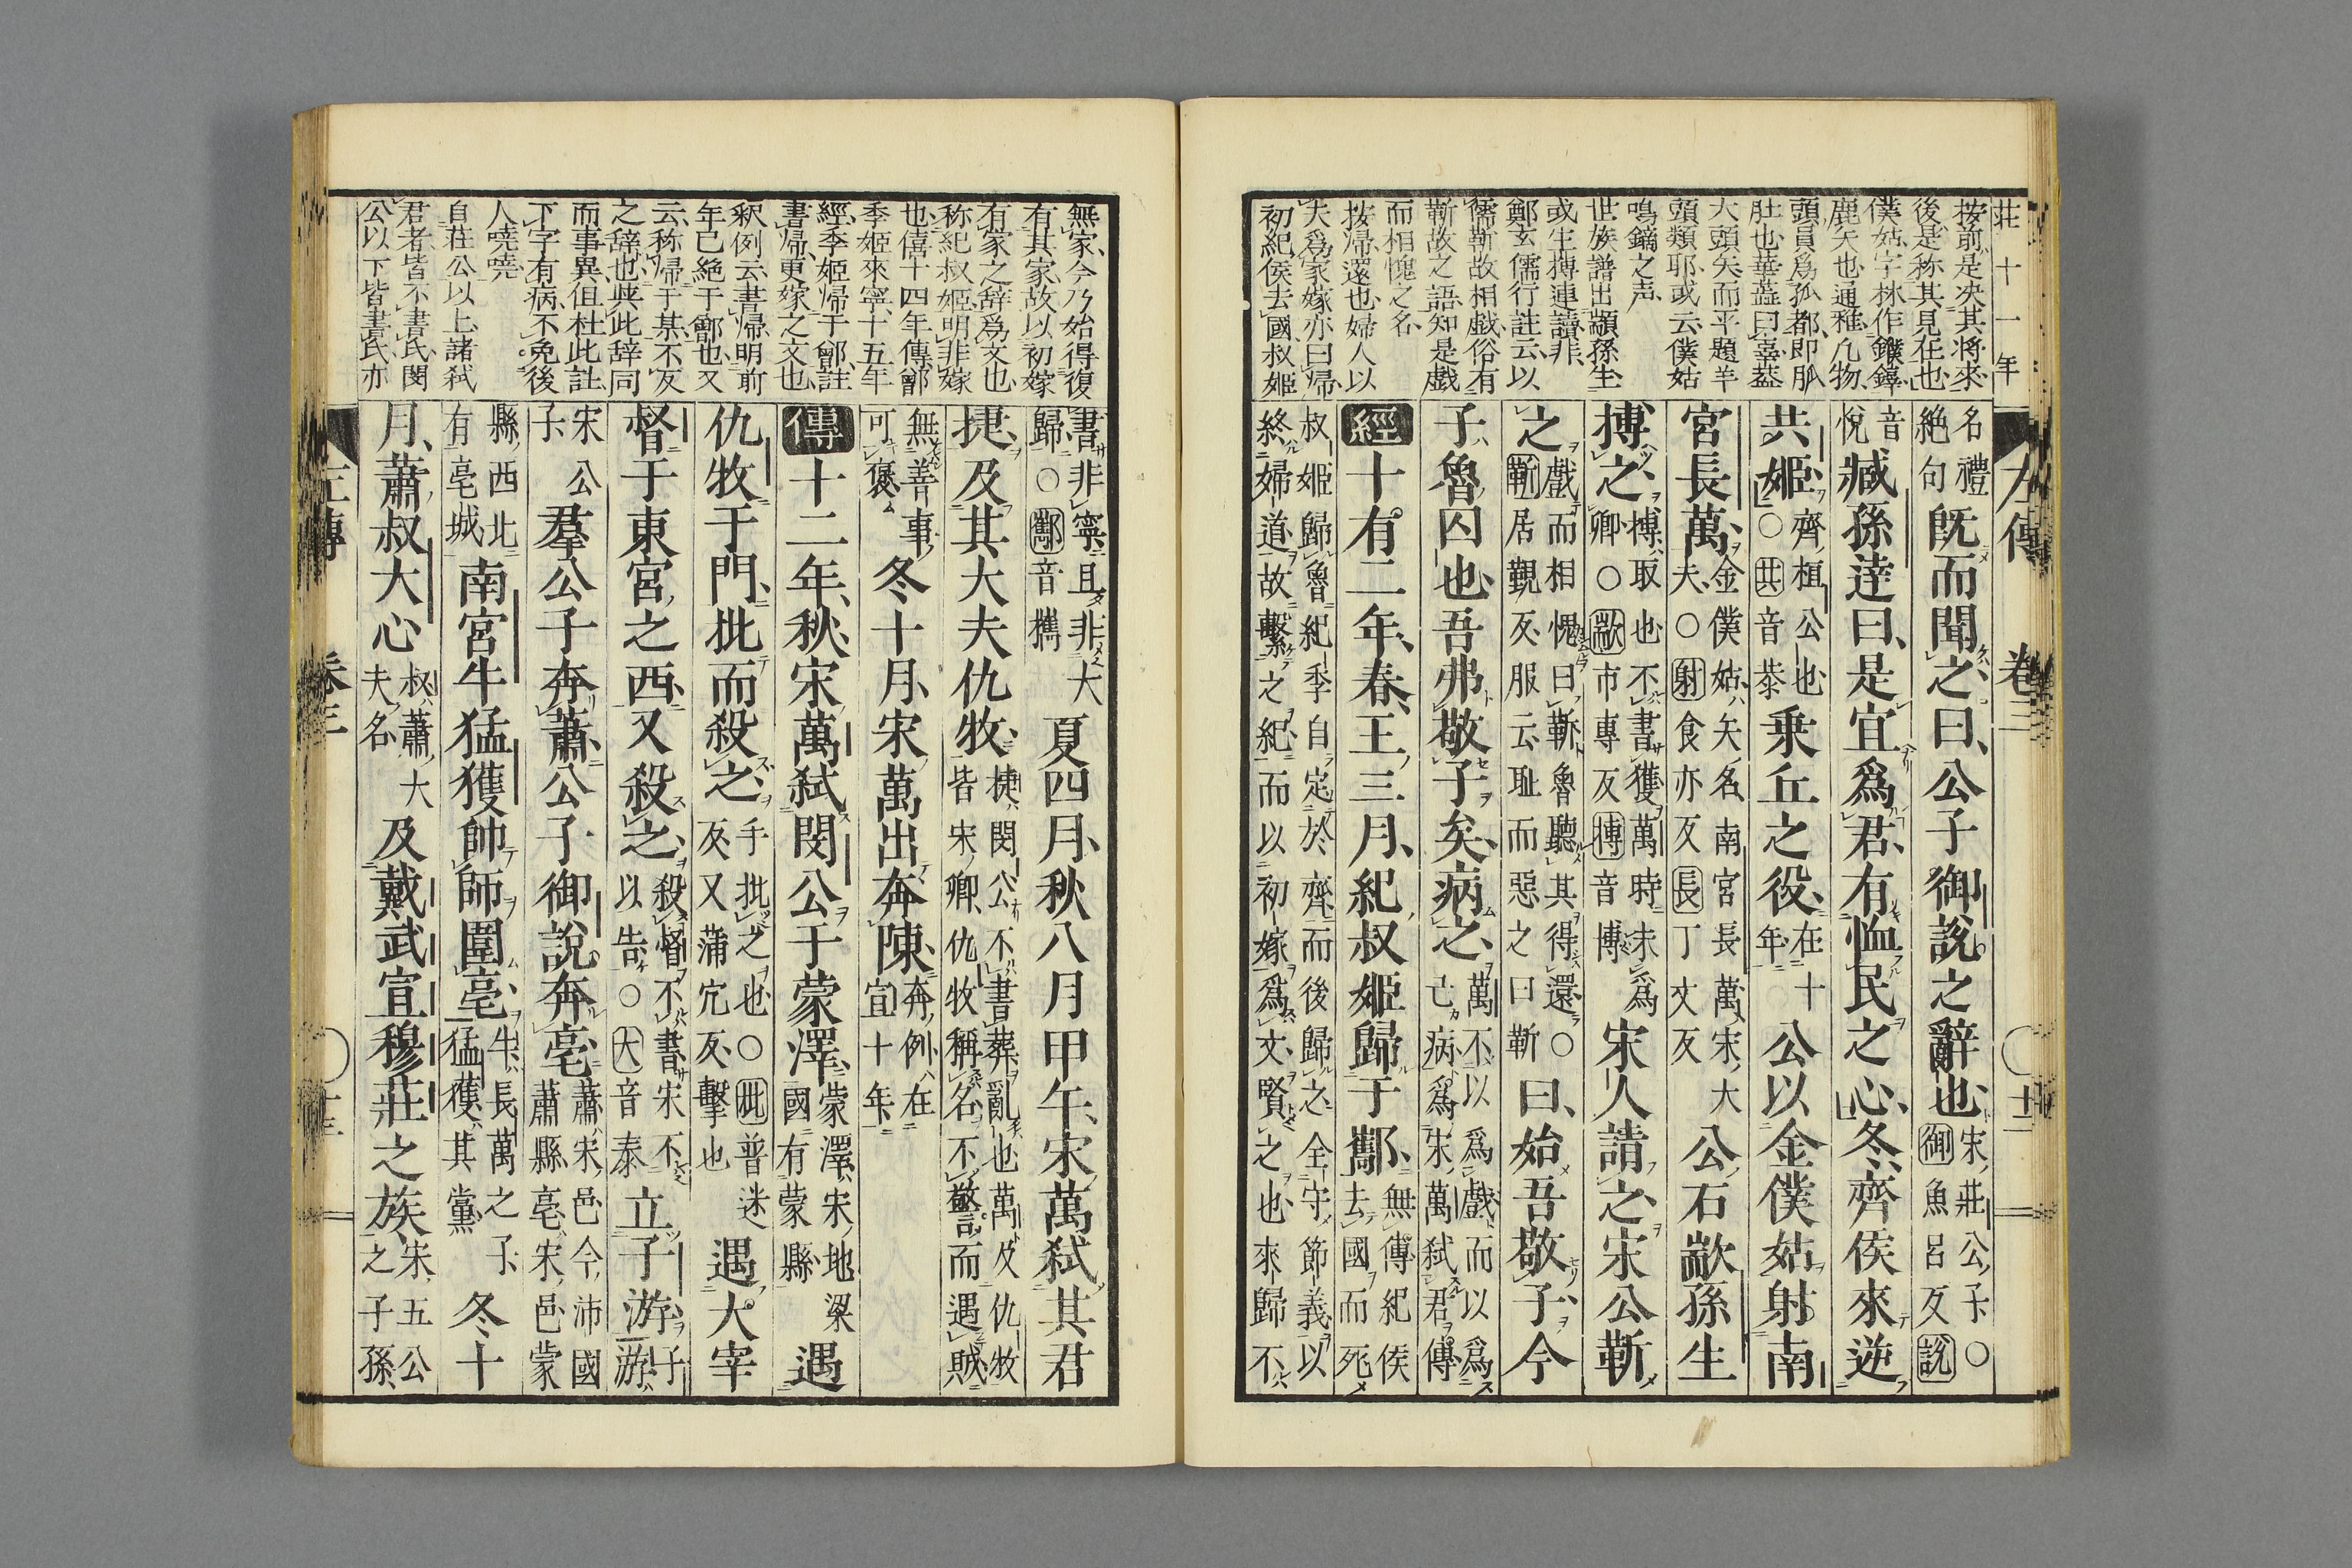 莊十一年
按前是决其将來
後是称其見在也
僕姑字林作鏷鏵
鹿矢也通雅凡物
頭員爲孤都即胍
肚也華蓋曰辜葢
大頭矢而平題羊
頭類耶或云僕姑
鳴鏑之声
世族譜出顓孫生
或生搏連讀非
鄭玄儒行註云以
儒靳故相戲俗有
靳故之語知是戲
而相愧之名
按歸還也婦人以
夫爲家嫁亦曰歸
初紀侯去國叔姬
左傳 卷三 十二
名禮絶句既而聞之曰公子御說之辭也宋莊公子○御魚呂反說
音悅臧孫達曰是宜爲君有恤民之心冬齊侯來逆
共姬齊桓公也○共音恭乗丘之役在十年公以金僕姑射南
宮長萬金僕姑矢名南宮長萬宋大夫○射食亦反長丁丈反公右歂孫生
搏之搏取也不書獲萬時未爲卿○歂市專反搏音博宋人請之宋公靳
之戲而相愧曰靳魯聽其得還○靳居覲反服云耻而惡之曰靳曰始吾敬子今
子魯囚也吾弗敬子矣病之萬不以爲戲而以爲亡病爲宋萬弑君傳
經十有二年春王三月紀叔姬歸于酅無傳紀侯去國而死
叔姬歸魯紀季自定於齊而後歸之全守節義以
終婦道故繫之紀而以初嫁爲文賢之也來歸不
無家今乃始得復
有其家故以初嫁
有家之辞爲文也
称紀叔姬明非嫁
也僖十四年傳鄫
季姬來寧十五年
經季姬帰于鄫註
書帰更嫁之文也
釈例云書帰明前
年已絶于鄫也又
云称帰于某不反
之辞也其此辞同
而事異但杜此註
下字有病不免後
人嘵嘵
自莊公以上諸弑
君者皆不書氏閔
公以下皆書氏亦
書非寧且非大歸○酅音攜夏四月秋八月甲午宋萬弑其君
捷及其大夫仇牧捷閔公不書葬亂也萬及仇牧皆宋卿仇牧稱名不警而遇賊
無善事可襃冬十月宋萬出奔陳奔例在宣十年
傳十二年秋宋萬弑閔公于蒙澤蒙澤宋地梁國有蒙縣遇
仇牧于門批而殺之手批之也○批普迷反又蒲宂反擊也遇大宰
督于東宮之西又殺之殺督不書宋不以告○大音泰立子游子游
宋公子羣公子奔蕭公子御說奔亳蕭宋邑今沛國蕭縣亳宋邑蒙
縣西北有亳城南宮牛猛獲帥師圍亳牛長萬之子猛獲其黨冬十
月蕭叔大心叔蕭大夫名及戴武宣穆莊之族宋五公之子孫
左傳 卷三 十三